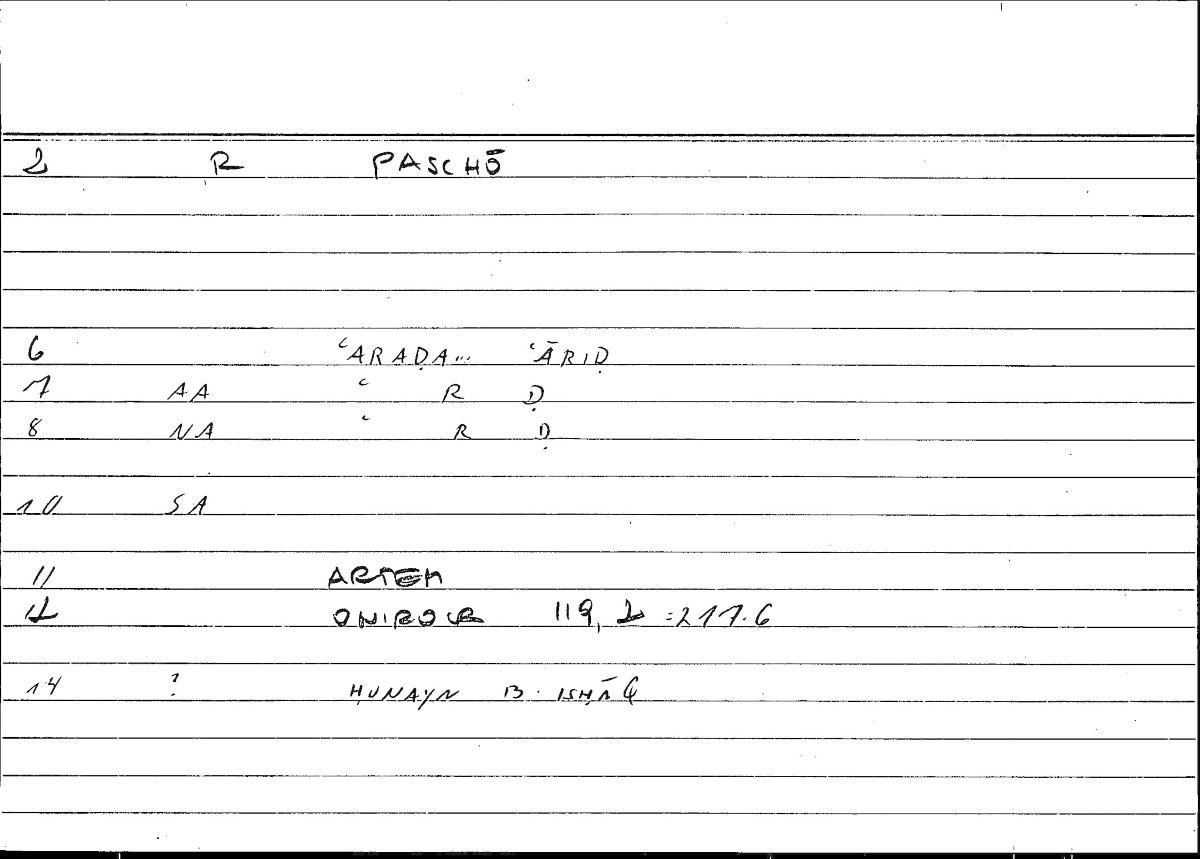 2 R PASCHŌ
6 ʿARAḌA... ʿĀRIḌ
7 AA ʿ R Ḍ
8 NA ʿ R Ḍ
10 SA
11 ARTEM
12 ONIROCR 119, 2 = 217.6
14 ? ḤUNAYN B. ISḤĀQ